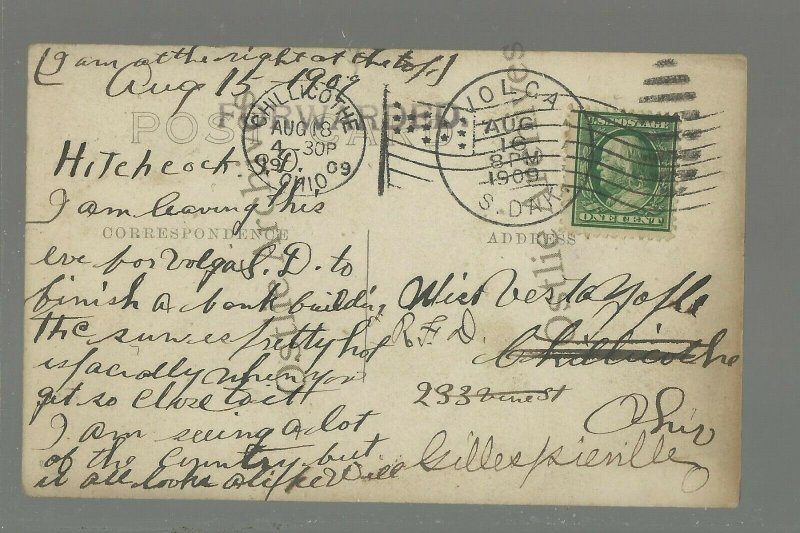 [I am at the right at the top]
Aug 15 - 1909
FORWARDED.
POST CARD
CHILLICOTHE
AUG 18
4 30P
09
OHIO
VOLGA
AUG
16
8 PM
1909
S. DAK.
U.S. POSTAGE
ONE CENT
Hitchcock S.D.
I am leaving this
CORRESPONDENCE
eve for Volga S.D. to
finish a bank building
the sun is pretty hot
especially when you
get so close to it
I am seeing a lot
of the Country but
it all looks alike Will
ADDRESS
Miss Vesta
R.F.D.
Chillicothe
233 Vine St
Ohio
Gillespieville
Ostlie Archives
Ostlie Archives